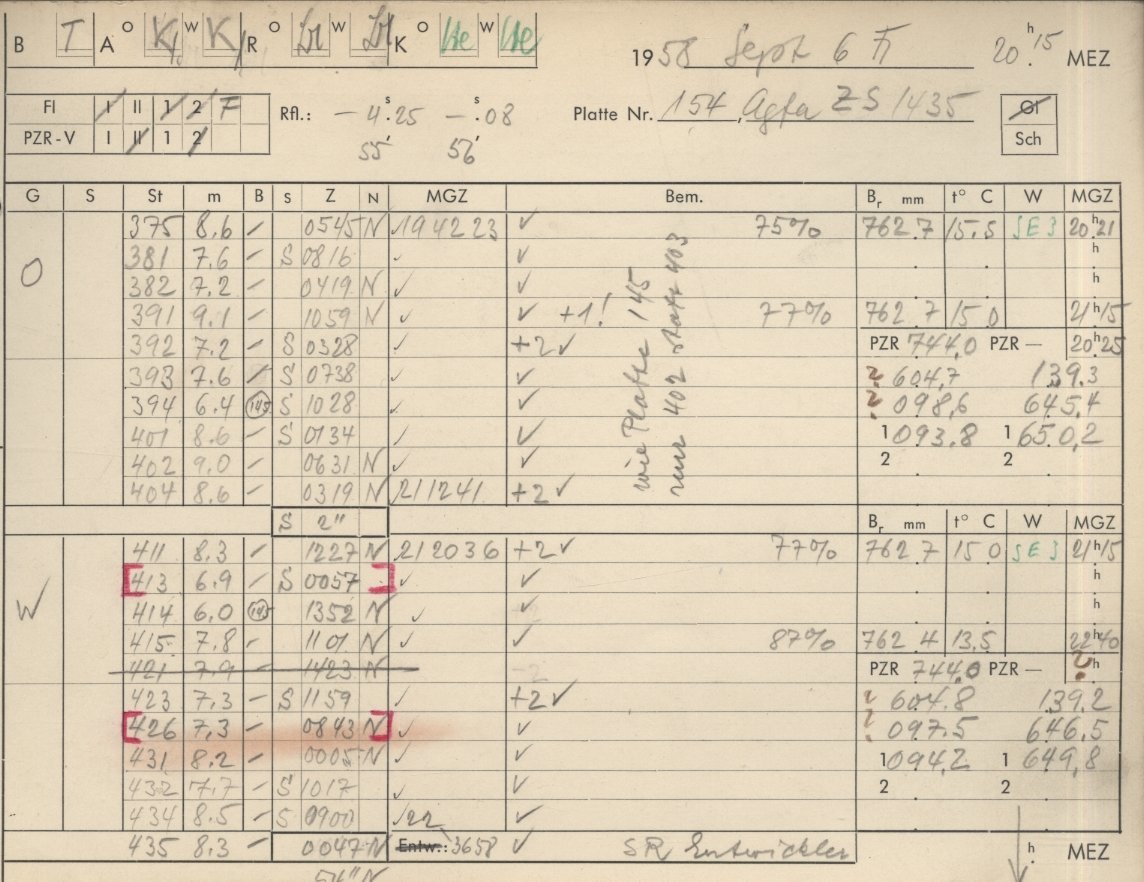 B T A O K W K R O W K O He W He 1958 Sept 6 20 h 15 MEZ
Fl I II 1 2 F Rfl.: — 4 s .25 — s .08 Platte Nr. 154, Agfa ZS 1435 Gl
PZR-V I II 1 2 55' 56' Sch
G S St m B S Z N MGZ Bem. Br mm t° C W MGZ
O 375 8.6 – 0545 N 194223 ✓ 75% 762.7 15.5 SE3 20 h 21
381 7.6 – S 0816 ✓ ✓ h
382 7.2 – 0419 N ✓ ✓ h
391 9.1 – 1059 N ✓ ✓ +1! 77% 762.7 15.0 21 h 15
392 7.2 – S 0328 ✓ +2 ✓ PZR 744.0 PZR — 20 h 25
393 7.6 – S 0738 ✓ ✓ ? 604.7 139.3
394 6.4 145 S 1028 ✓ ✓ ? 098.6 645.4
401 8.6 – S 0134 ✓ ✓ 1 093.8 1 650.2
402 9.0 – 0631 N ✓ ✓ 2 2
404 8.6 – 0319 N 211241 +2 ✓
wie Platte 145
nur 402 statt 403
S 2" Br mm t° C W MGZ
W 411 8.3 – 1227 N 212036 +2 ✓ 77% 762.7 15.0 SE3 21 h 15
[413 6.9 – S 0057 ] ✓ ✓ h
414 6.0 145 1352 N ✓ ✓ h
415 7.8 – 1101 N ✓ ✓ 87% 762.4 13.5 22 h 40
421 7.9 – 1423 N -2 PZR 744.0 PZR — ? h
423 7.3 – S 1159 ✓ +2 ✓ ? 604.8 139.2
[426 7.3 – 0843 N] ✓ ✓ ? 097.5 646.5
431 8.2 – 0005 N ✓ ✓ 1 094.2 1 649.8
432 7.7 – S 1017 ✓ ✓ 2 2
434 8.5 – S 0900 22 ✓
435 8.3 – 0047 N Entw.: 3658 ✓ SR Entwickler h MEZ
54" N